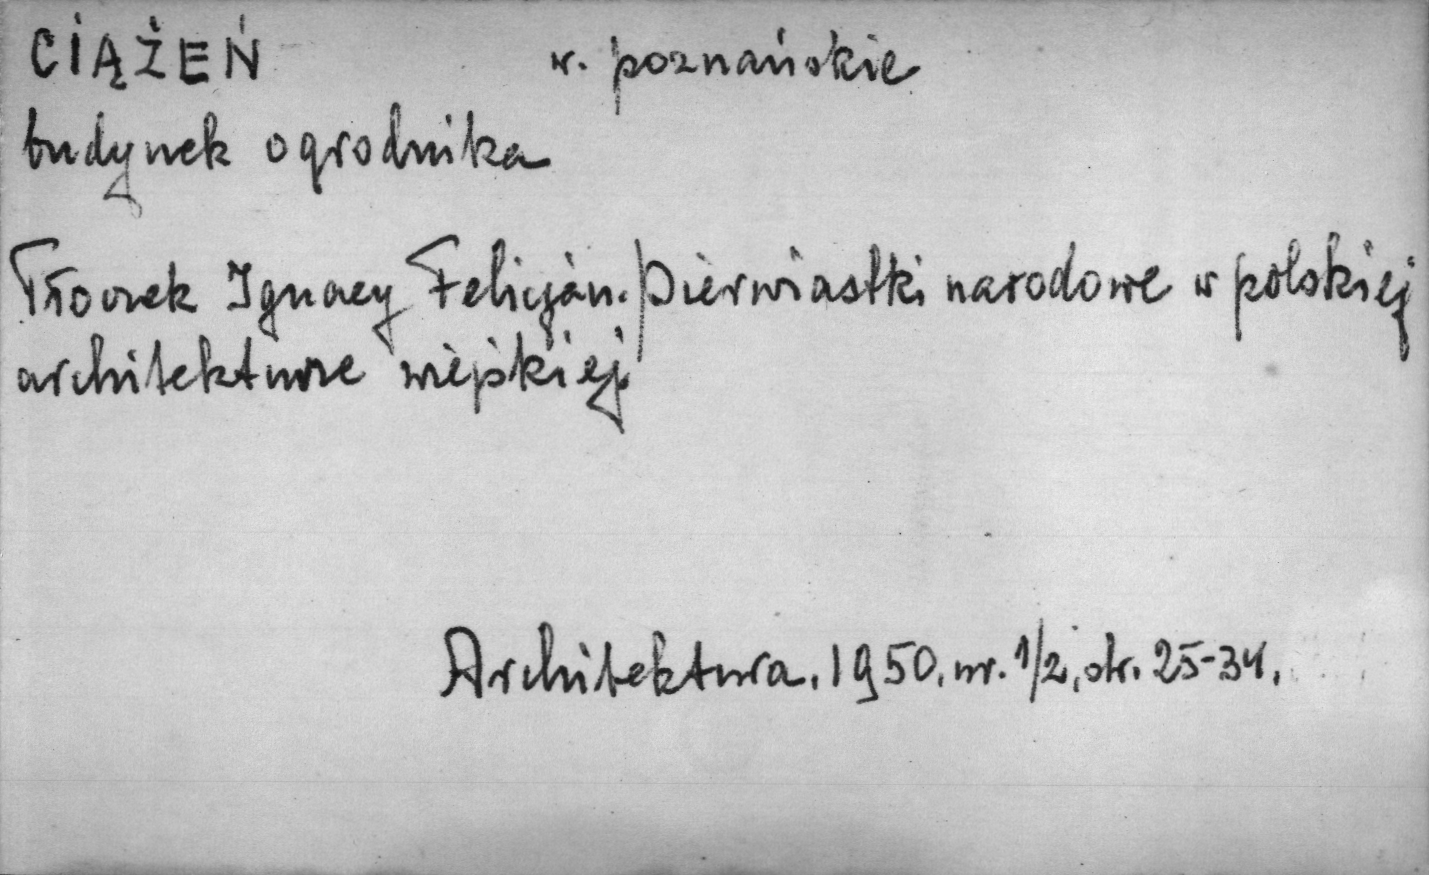 CIĄŻEŃ w. poznańskie
budynek ogrodnika
Tłoczek Ignacy Felicjan. Pierwiastki narodowe w polskiej
architekturze wiejskiej.
Architektura. 1950. nr. 1/2, str. 25-34.